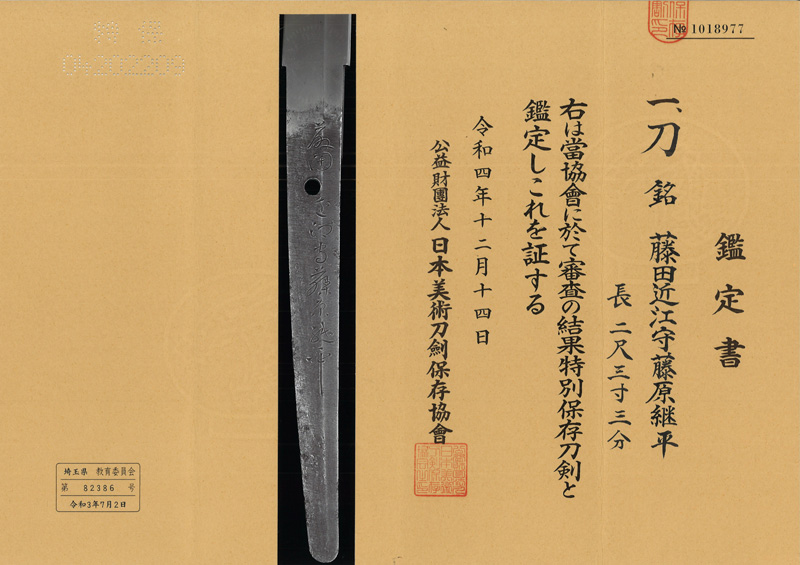 № 1018977
鑑定書
一、刀 銘 藤田近江守藤原継平
長 二尺三寸三分
右は當協會に於て審査の結果特別保存刀剣と
鑑定しこれを証する
令和四年十二月十四日
公益財團法人 日本美術刀劍保存協會
埼玉県 教育委員会
第 82386 号
令和3年7月2日